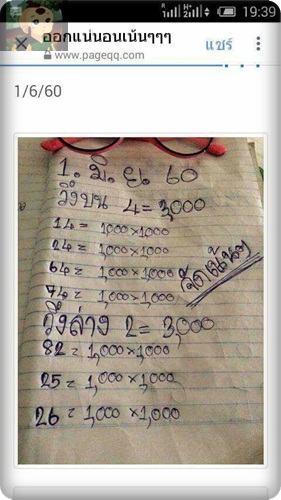 19:39
ออกแน่นอนเน้นๆๆๆ
www.pageqq.com
แชร์
1/6/60
1. มิ.ย. 60
วิ่งบน 4 = 3,000
14 = 1,000 × 1,000
24 = 1,000 × 1,000
64 = 1,000 × 1,000
74 = 1,000 × 1,000
จัดเน้นๆ
วิ่งล่าง 2 = 3,000
82 = 1,000 × 1,000
25 = 1,000 × 1,000
26 = 1,000 × 1,000